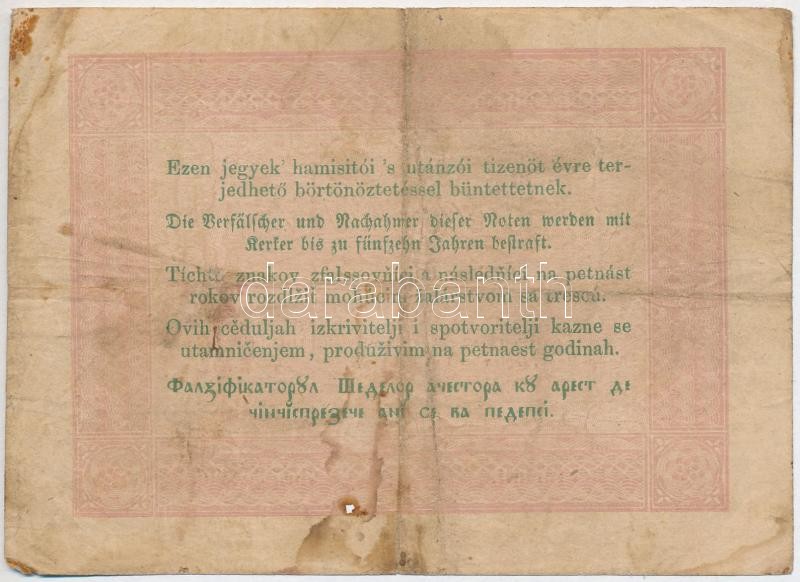 Ezen jegyek' hamisitói 's utánzói tizenöt évre ter-
jedhető börtönöztetéssel büntettetnek.
Die Verfälscher und Nachahmer dieser Noten werden mit
Kerker bis zu fünfzehn Jahren bestraft.
Tíchto znakov zfalssovňíci a následňíci na petnást
rokov rozdlžiť mohúcim žalárstvom sa trescú.
darabanth
Ovih cěduljah izkrivitelji i spotvoritelji kazne se
utamničenjem, produživim na petnaest godinah.
Фалꙁіфікаторȣл Шеделор ачестора кȣ арест де
чінчіспреꙁече ані се ва педепсі.